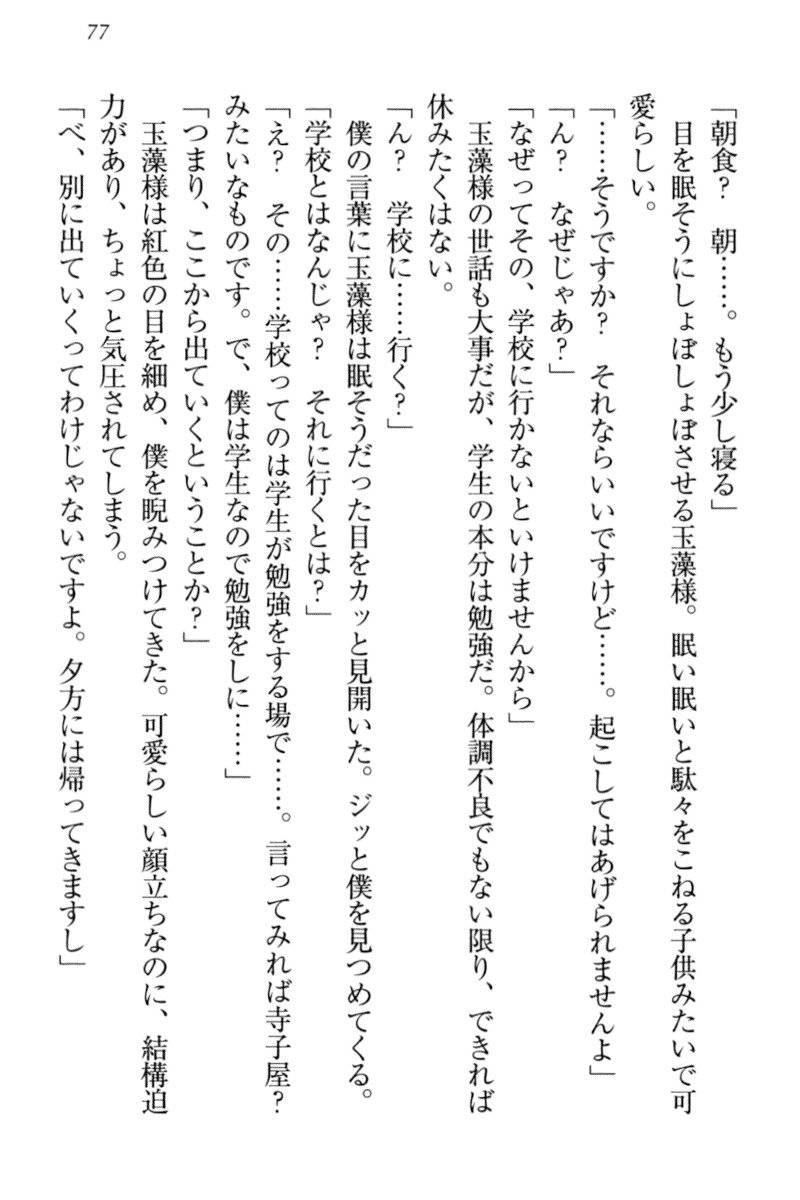 77
「朝食?　朝……。もう少し寝る」
　目を眠そうにしょぼしょぼさせる玉藻様。眠い眠いと駄々をこねる子供みたいで可
愛らしい。
「……そうですか?　それならいいですけど……。起こしてはあげられませんよ」
「ん?　なぜじゃあ?」
「なぜってその、学校に行かないといけませんから」
　玉藻様の世話も大事だが、学生の本分は勉強だ。体調不良でもない限り、できれば
休みたくはない。
「ん?　学校に……行く?」
　僕の言葉に玉藻様は眠そうだった目をカッと見開いた。ジッと僕を見つめてくる。
「学校とはなんじゃ?　それに行くとは?」
「え?　その……学校ってのは学生が勉強をする場で……。言ってみれば寺子屋?
みたいなものです。で、僕は学生なので勉強をしに……」
「つまり、ここから出ていくということか?」
　玉藻様は紅色の目を細め、僕を睨みつけてきた。可愛らしい顔立ちなのに、結構迫
力があり、ちょっと気圧されてしまう。
「べ、別に出ていくってわけじゃないですよ。夕方には帰ってきますし」